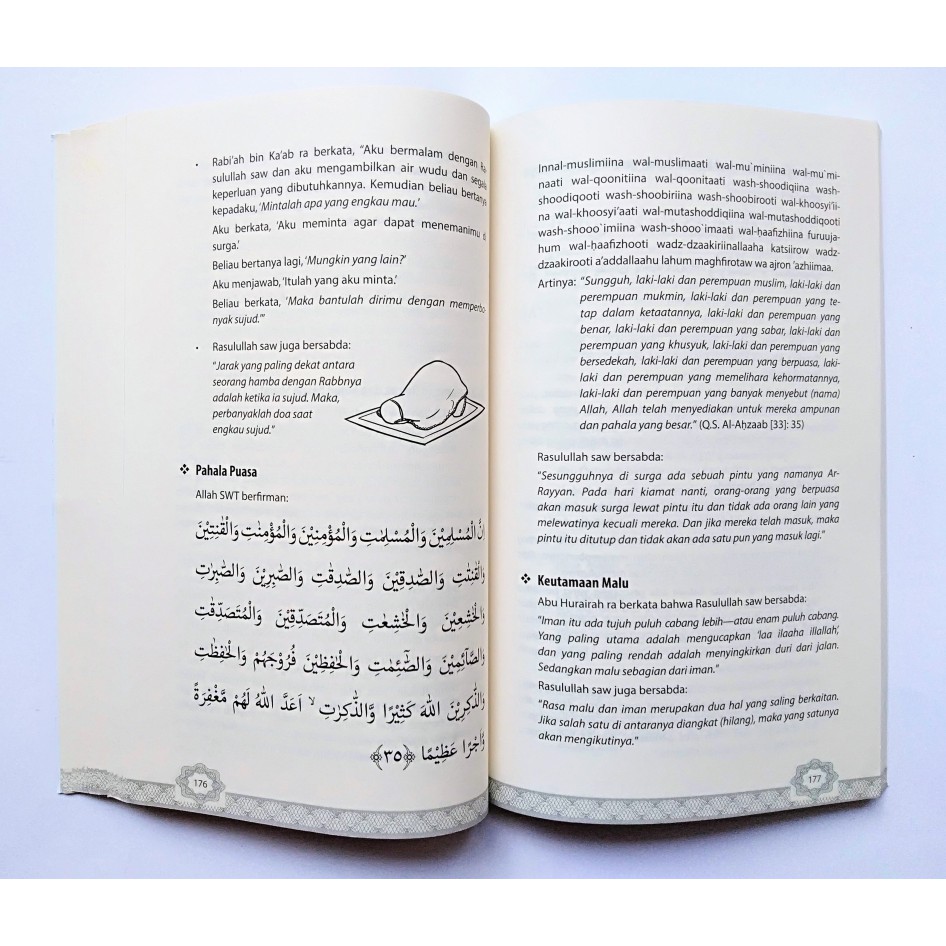 • Rabi'ah bin Ka'ab ra berkata, "Aku bermalam dengan Ra-
sulullah saw dan aku mengambilkan air wudu dan segala
keperluan yang dibutuhkannya. Kemudian beliau bertanya
kepadaku, 'Mintalah apa yang engkau mau.'
Aku berkata, 'Aku meminta agar dapat menemanimu di
surga.'
Beliau bertanya lagi, 'Mungkin yang lain?'
Aku menjawab, 'Itulah yang aku minta.'
Beliau berkata, 'Maka bantulah dirimu dengan memperba-
nyak sujud.'"
• Rasulullah saw juga bersabda:
"Jarak yang paling dekat antara
seorang hamba dengan Rabbnya
adalah ketika ia sujud. Maka,
perbanyaklah doa saat
engkau sujud."
❖ Pahala Puasa
Allah SWT berfirman:
اِنَّ الْمُسْلِمِيْنَ وَالْمُسْلِمٰتِ وَالْمُؤْمِنِيْنَ وَالْمُؤْمِنٰتِ وَالْقٰنِتِيْنَ
وَالْقٰنِتٰتِ وَالصّٰدِقِيْنَ وَالصّٰدِقٰتِ وَالصّٰبِرِيْنَ وَالصّٰبِرٰتِ
وَالْخٰشِعِيْنَ وَالْخٰشِعٰتِ وَالْمُتَصَدِّقِيْنَ وَالْمُتَصَدِّقٰتِ
وَالصَّاۤئِمِيْنَ وَالصّٰۤئِمٰتِ وَالْحٰفِظِيْنَ فُرُوْجَهُمْ وَالْحٰفِظٰتِ
وَالذّٰكِرِيْنَ اللّٰهَ كَثِيْرًا وَّالذّٰكِرٰتِ ۙ اَعَدَّ اللّٰهُ لَهُمْ مَّغْفِرَةً
وَّاَجْرًا عَظِيْمًا ﴿٣٥﴾
176
Innal-muslimiina wal-muslimaati wal-mu`miniina wal-mu`mi-
naati wal-qoonitiina wal-qoonitaati wash-shoodiqiina wash-
shoodiqooti wash-shoobiriina wash-shoobirooti wal-khoosyi'ii-
na wal-khoosyi'aati wal-mutashoddiqiina wal-mutashoddiqooti
wash-shooo`imiina wash-shooo`imaati wal-ḥaafizhiina furuuja-
hum wal-ḥaafizhooti wadz-dzaakiriinallaaha katsiirow wadz-
dzaakirooti a'addallaahu lahum maghfirotaw wa ajron 'azhiimaa.
Artinya: "Sungguh, laki-laki dan perempuan muslim, laki-laki dan
perempuan mukmin, laki-laki dan perempuan yang te-
tap dalam ketaatannya, laki-laki dan perempuan yang
benar, laki-laki dan perempuan yang sabar, laki-laki dan
perempuan yang khusyuk, laki-laki dan perempuan yang
bersedekah, laki-laki dan perempuan yang berpuasa, laki-
laki dan perempuan yang memelihara kehormatannya,
laki-laki dan perempuan yang banyak menyebut (nama)
Allah, Allah telah menyediakan untuk mereka ampunan
dan pahala yang besar." (Q.S. Al-Aḥzaab [33]: 35)
Rasulullah saw bersabda:
"Sesungguhnya di surga ada sebuah pintu yang namanya Ar-
Rayyan. Pada hari kiamat nanti, orang-orang yang berpuasa
akan masuk surga lewat pintu itu dan tidak ada orang lain yang
melewatinya kecuali mereka. Dan jika mereka telah masuk, maka
pintu itu ditutup dan tidak akan ada satu pun yang masuk lagi."
❖ Keutamaan Malu
Abu Hurairah ra berkata bahwa Rasulullah saw bersabda:
"Iman itu ada tujuh puluh cabang lebih—atau enam puluh cabang.
Yang paling utama adalah mengucapkan 'laa ilaaha illallah',
dan yang paling rendah adalah menyingkirkan duri dari jalan.
Sedangkan malu sebagian dari iman."
Rasulullah saw juga bersabda:
"Rasa malu dan iman merupakan dua hal yang saling berkaitan.
Jika salah satu di antaranya diangkat (hilang), maka yang satunya
akan mengikutinya."
177